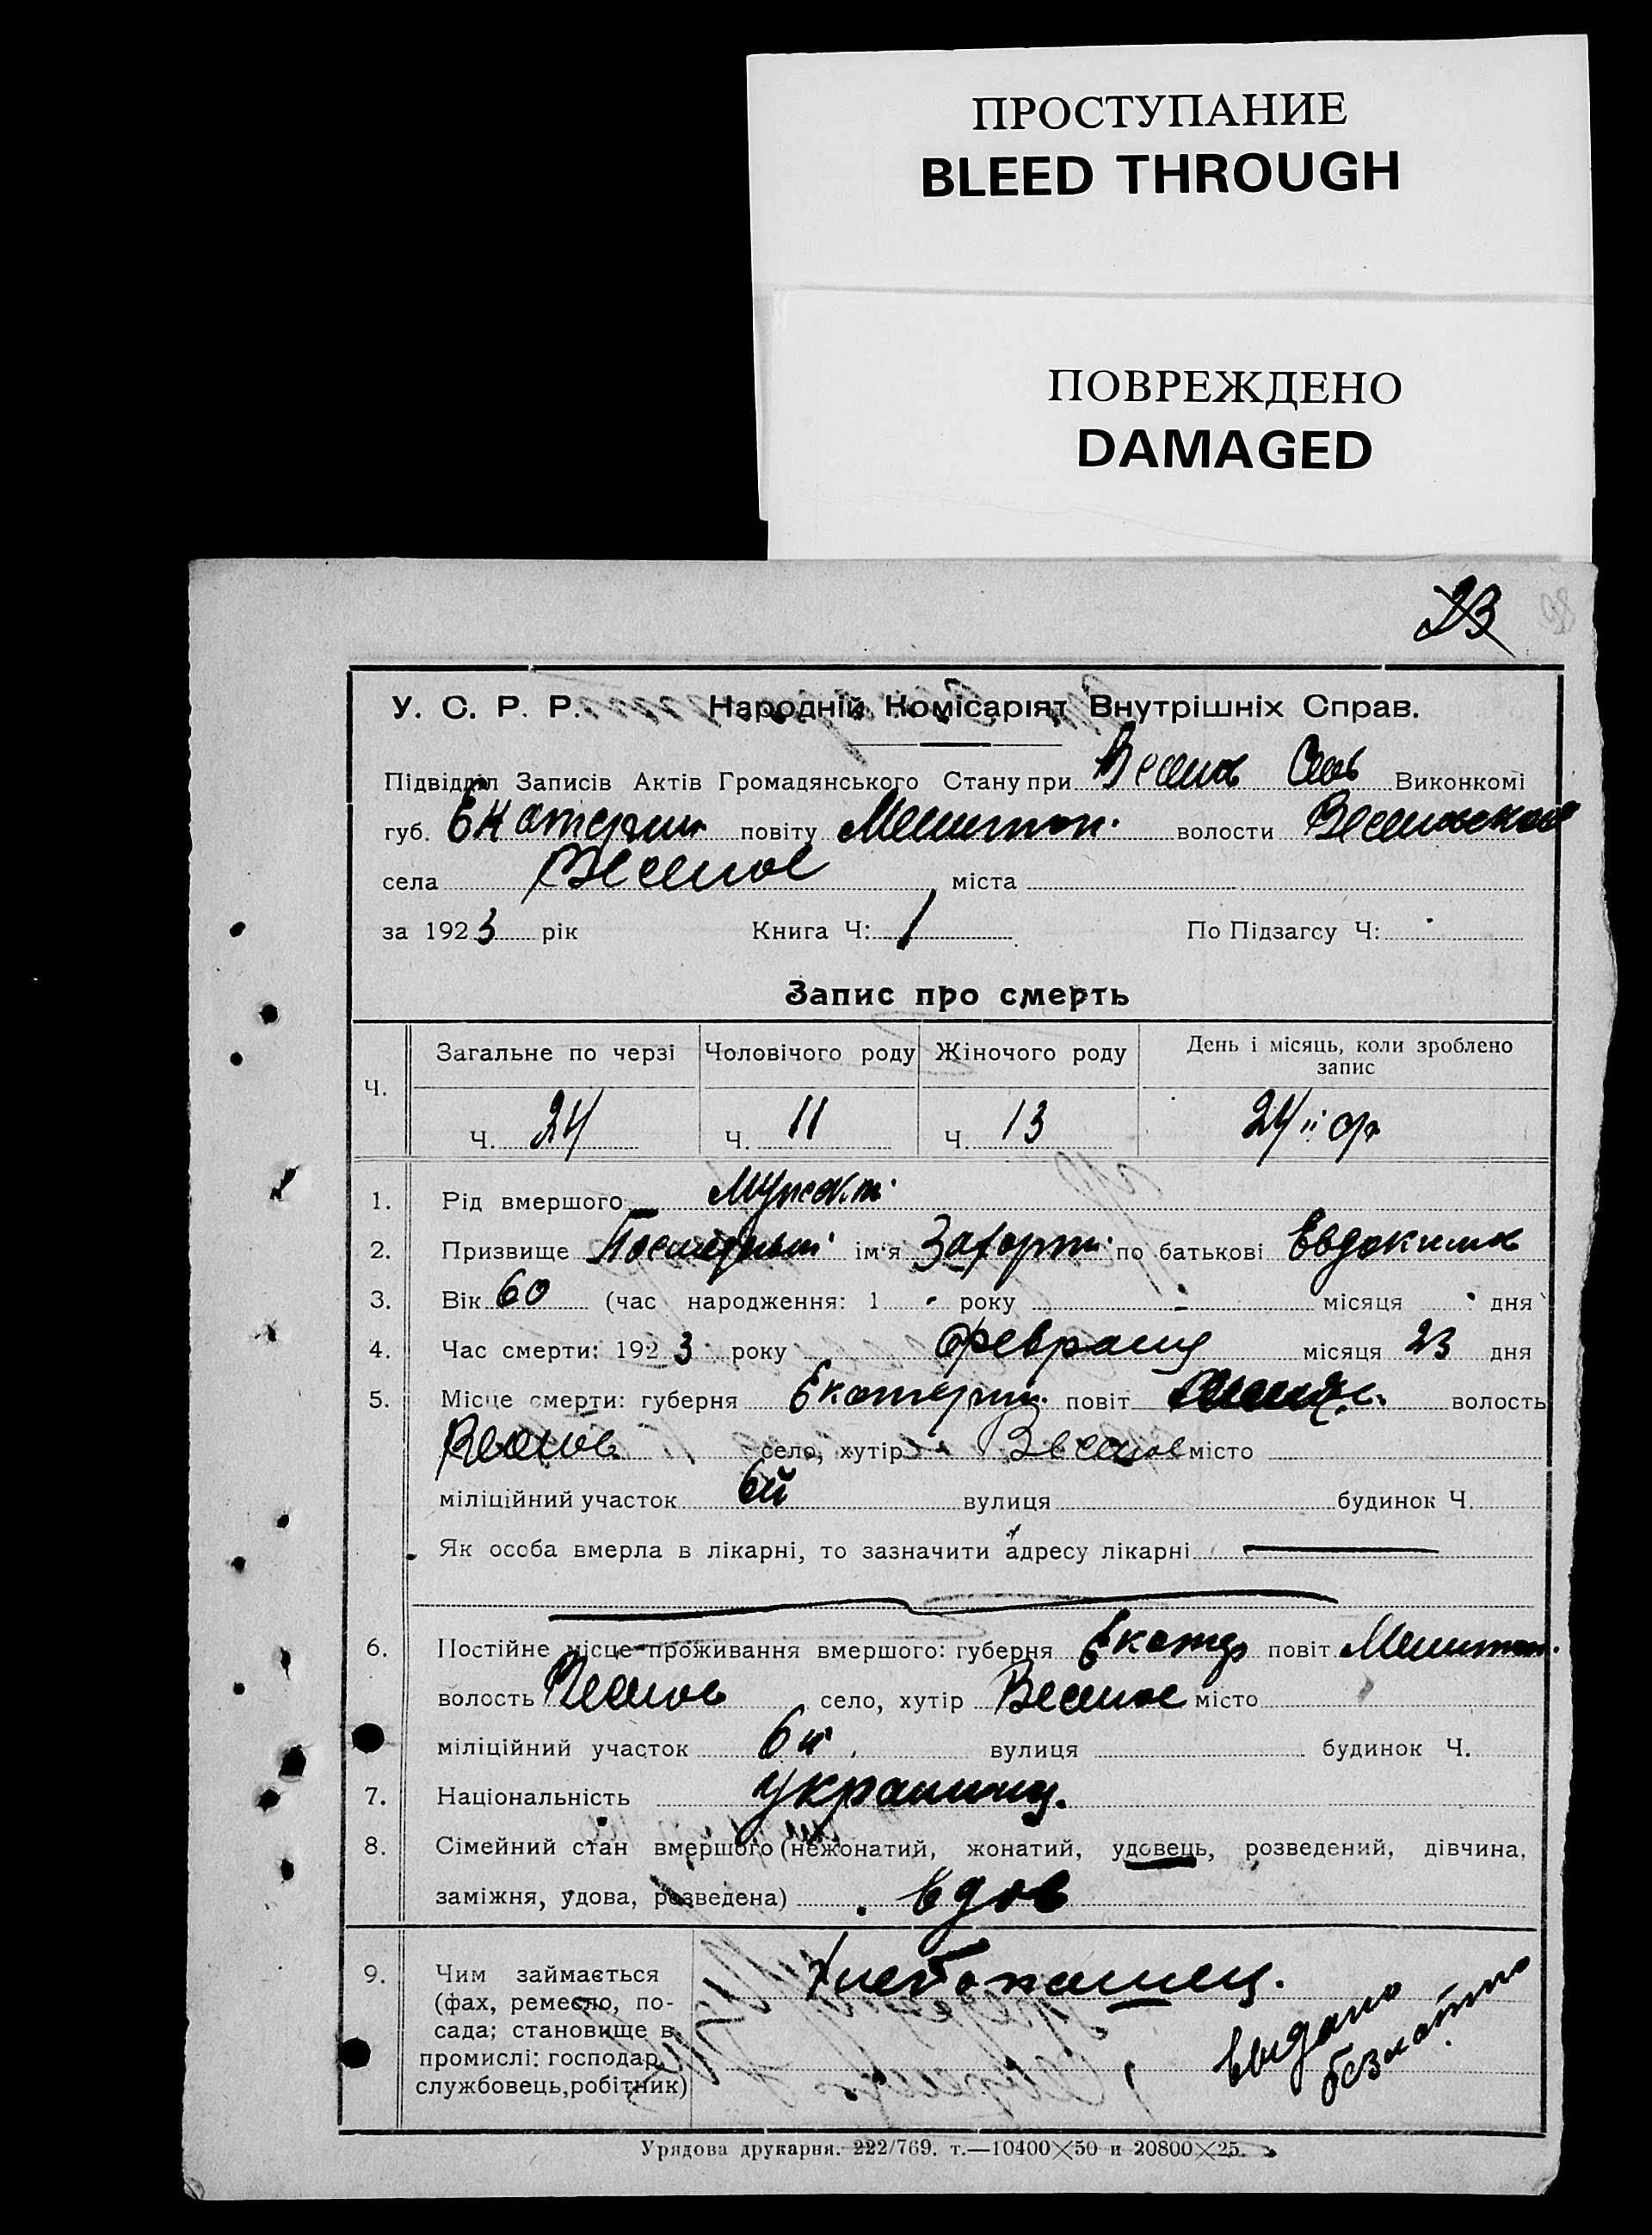 ПРОСТУПАНИЕ
BLEED THROUGH
ПОВРЕЖДЕНО
DAMAGED
23
У. С. Р. Р. Народній Комісаріят Внутрішніх Справ.
Підвідділ Записів Актів Громадянського Стану при Виконкомі
губ. Екатерин повіту Мелитоп. волости
села Веселое міста
за 1923 рік Книга Ч: 1 По Підзагсу Ч:
Запис про смерть
Ч. Загальне по черзі Чоловічого роду Жіночого роду День і місяць, коли зроблено запис
Ч. 24 Ч. 11 Ч. 13 24
1. Рід вмершого Мужск.
2. Призвище ім'я по батькові Евдоким
3. Вік 60 (час народження: 1 - року - місяця - дня
4. Час смерти: 1923 року Февраля місяця 23 дня
5. Місце смерти: губерня Екатерин. повіт волость
село, хутір Веселое місто
міліційний участок 6й вулиця будинок Ч.
Як особа вмерла в лікарні, то зазначити адресу лікарні
6. Постійне місце проживання вмершого: губерня Екатер повіт Мелитоп.
волость Веселов село, хутір Веселое місто
міліційний участок 6й вулиця будинок Ч.
7. Національність украинец.
8. Сімейний стан вмершого (нежонатий, жонатий, удовець, розведений, дівчина,
заміжня, удова, розведена) вдов
9. Чим займається Хлебопашец.
(фах, ремесло, по-
сада; становище в
промислі: господар,
службовець, робітник)
выдано
безплатно
Урядова друкарня. 222/769. т.—10400×50 и 20800×25.